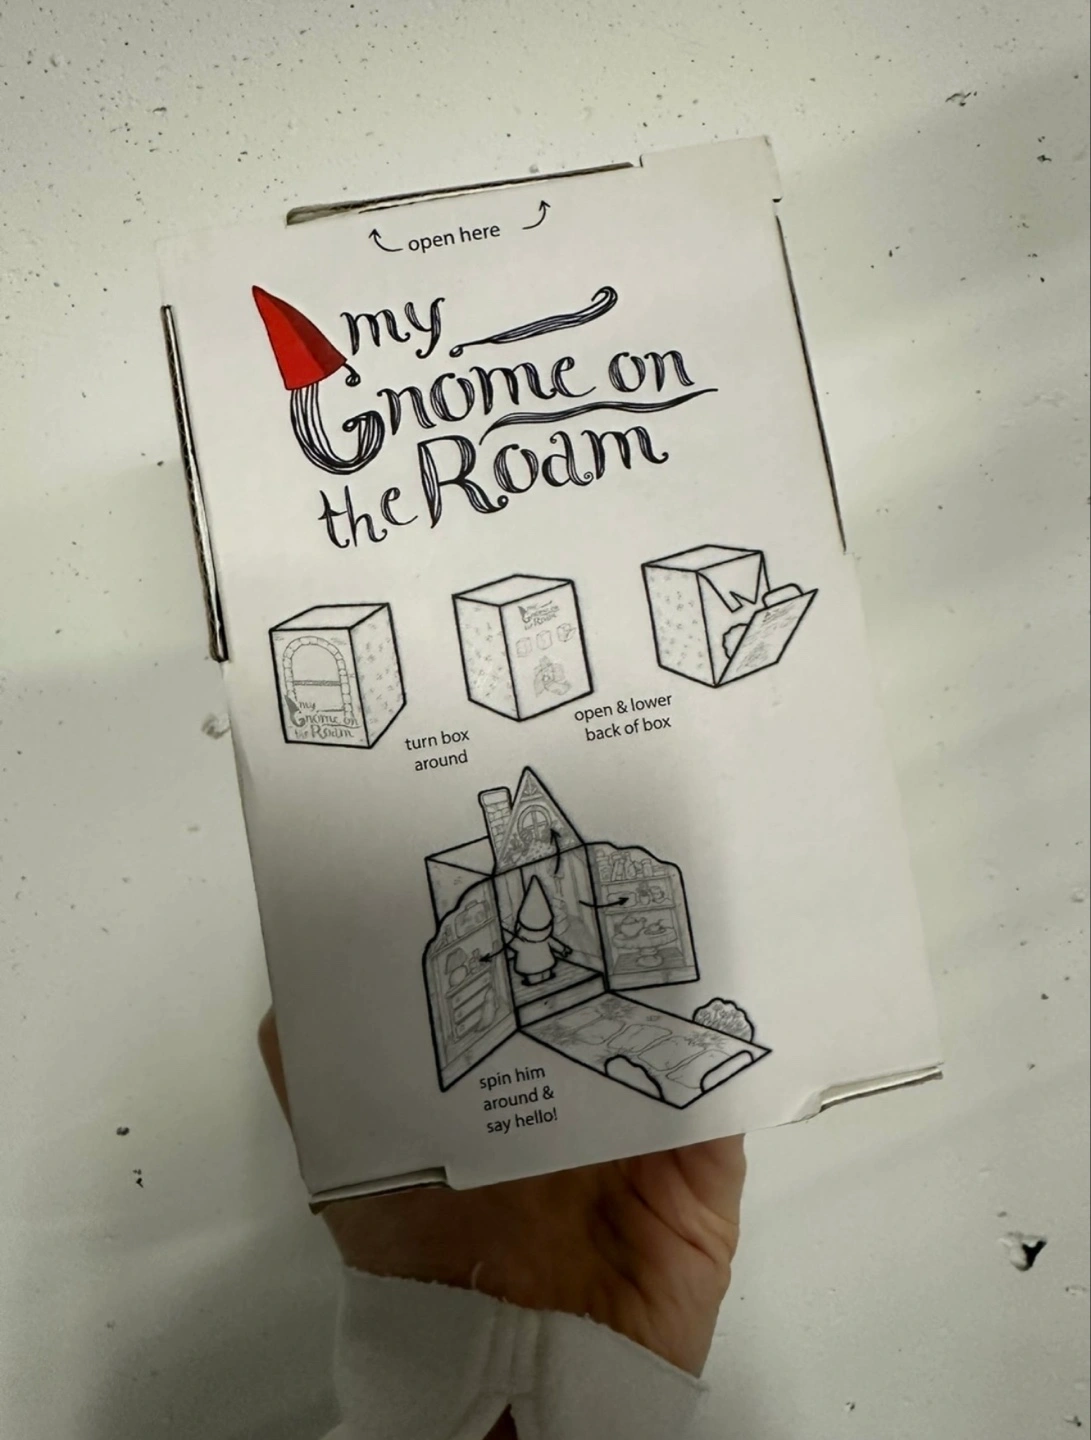 open here
my
Gnome on
the Roam
my
Gnome on
the Roam
my
Gnome on
the Roam
turn box
around
open & lower
back of box
spin him
around &
say hello!